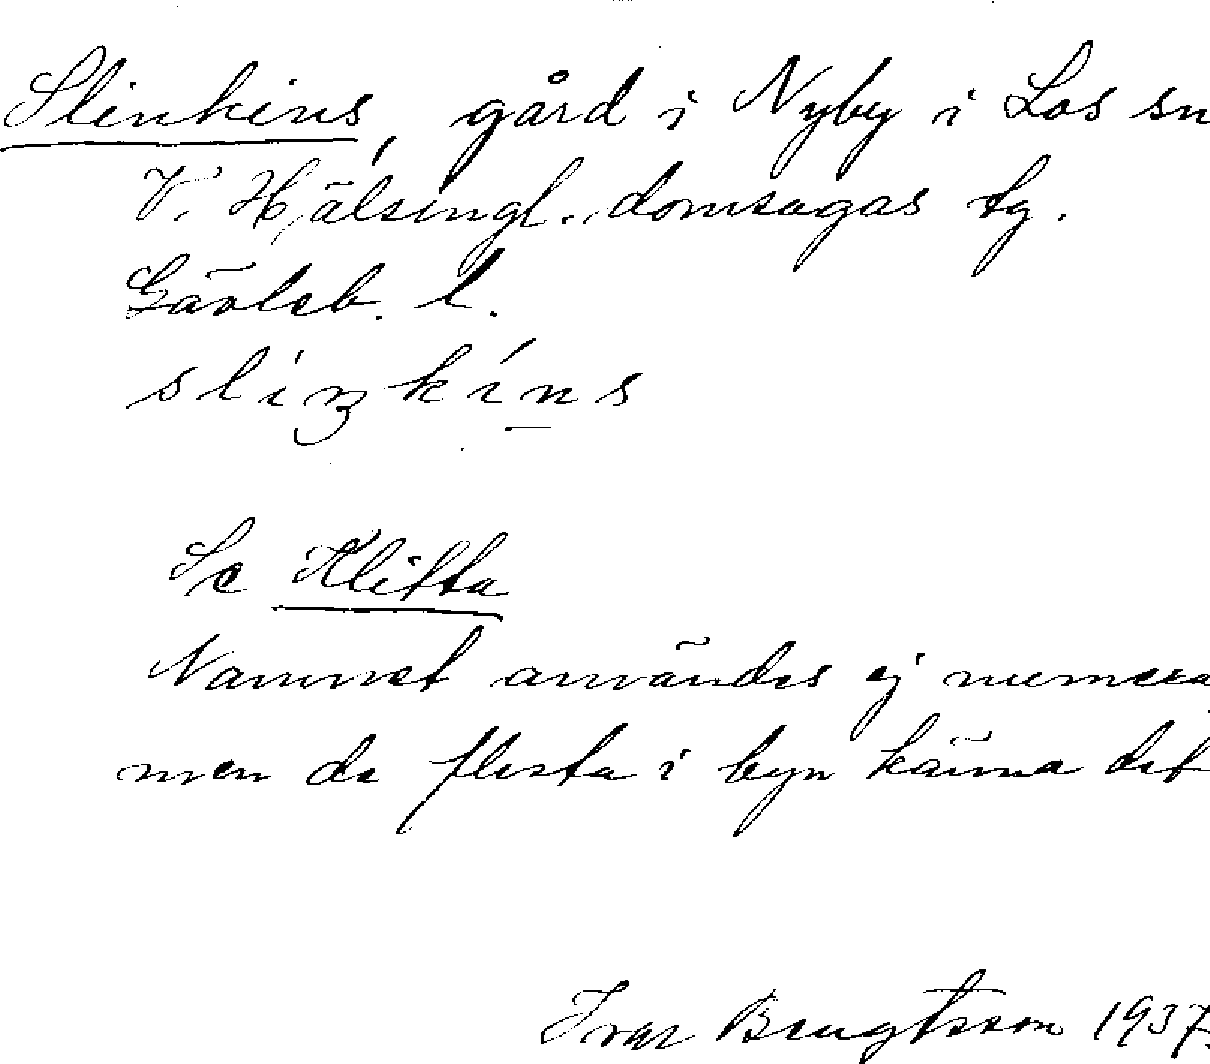 Slinkins, gård i Nyby i Los sn
V. Hälsingl. domsagas tg.
Gävleb. l.
sliŋkins
Se Klitta
Namnet användes ej numera
men de flesta i byn känna det
Ivar Bengtsson 1937.